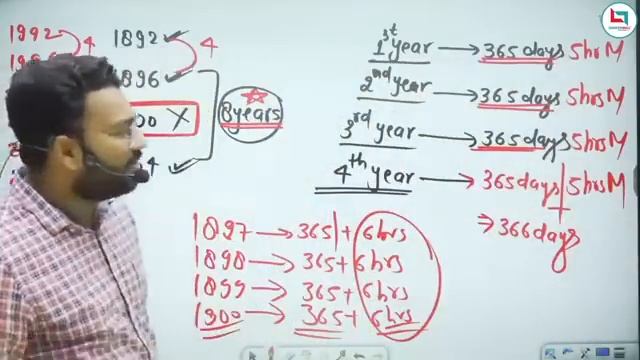 1992
4
1892 ✓
4
1896 ✓
00 X
4 ✓
8years
1st year → 365 days 5hrs M
2nd year → 365 days 5hrs M
3rd year → 365 days 5hrs M
4th year → 365 days 5hrs M
⇒ 366 days
1897 → 365 + 6 hrs
1898 → 365 + 6 hrs
1899 → 365 + 6 hrs
1900 → 365 + 6 hrs